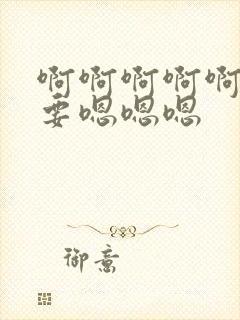 啊啊啊啊啊
要嗯嗯嗯
御意